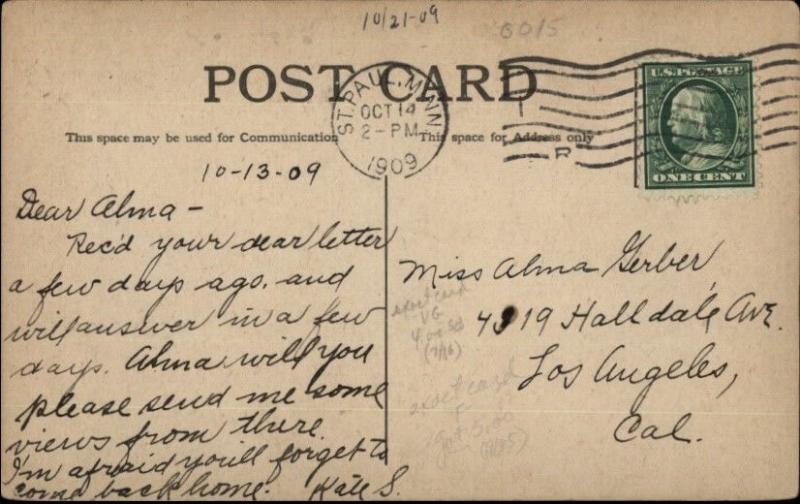 10/21-09
6015
POST CARD
ST. PAUL, MINN
OCT 14
2-PM
1909
U.S. POSTAGE
ONE CENT
This space may be used for Communication
This space for Address only
R
10-13-09
Dear Alma-
Rec'd your dear letter
a few days ago, and
will answer in a few
days. Alma will you
please send me some
views from there.
I'm afraid you'll forget to
come back home. Kate S.
Miss Alma Gerber,
4919 Halldale Ave.
Los Angeles,
Cal.
exact card
VG
(7/16)
exact card
F
5.00